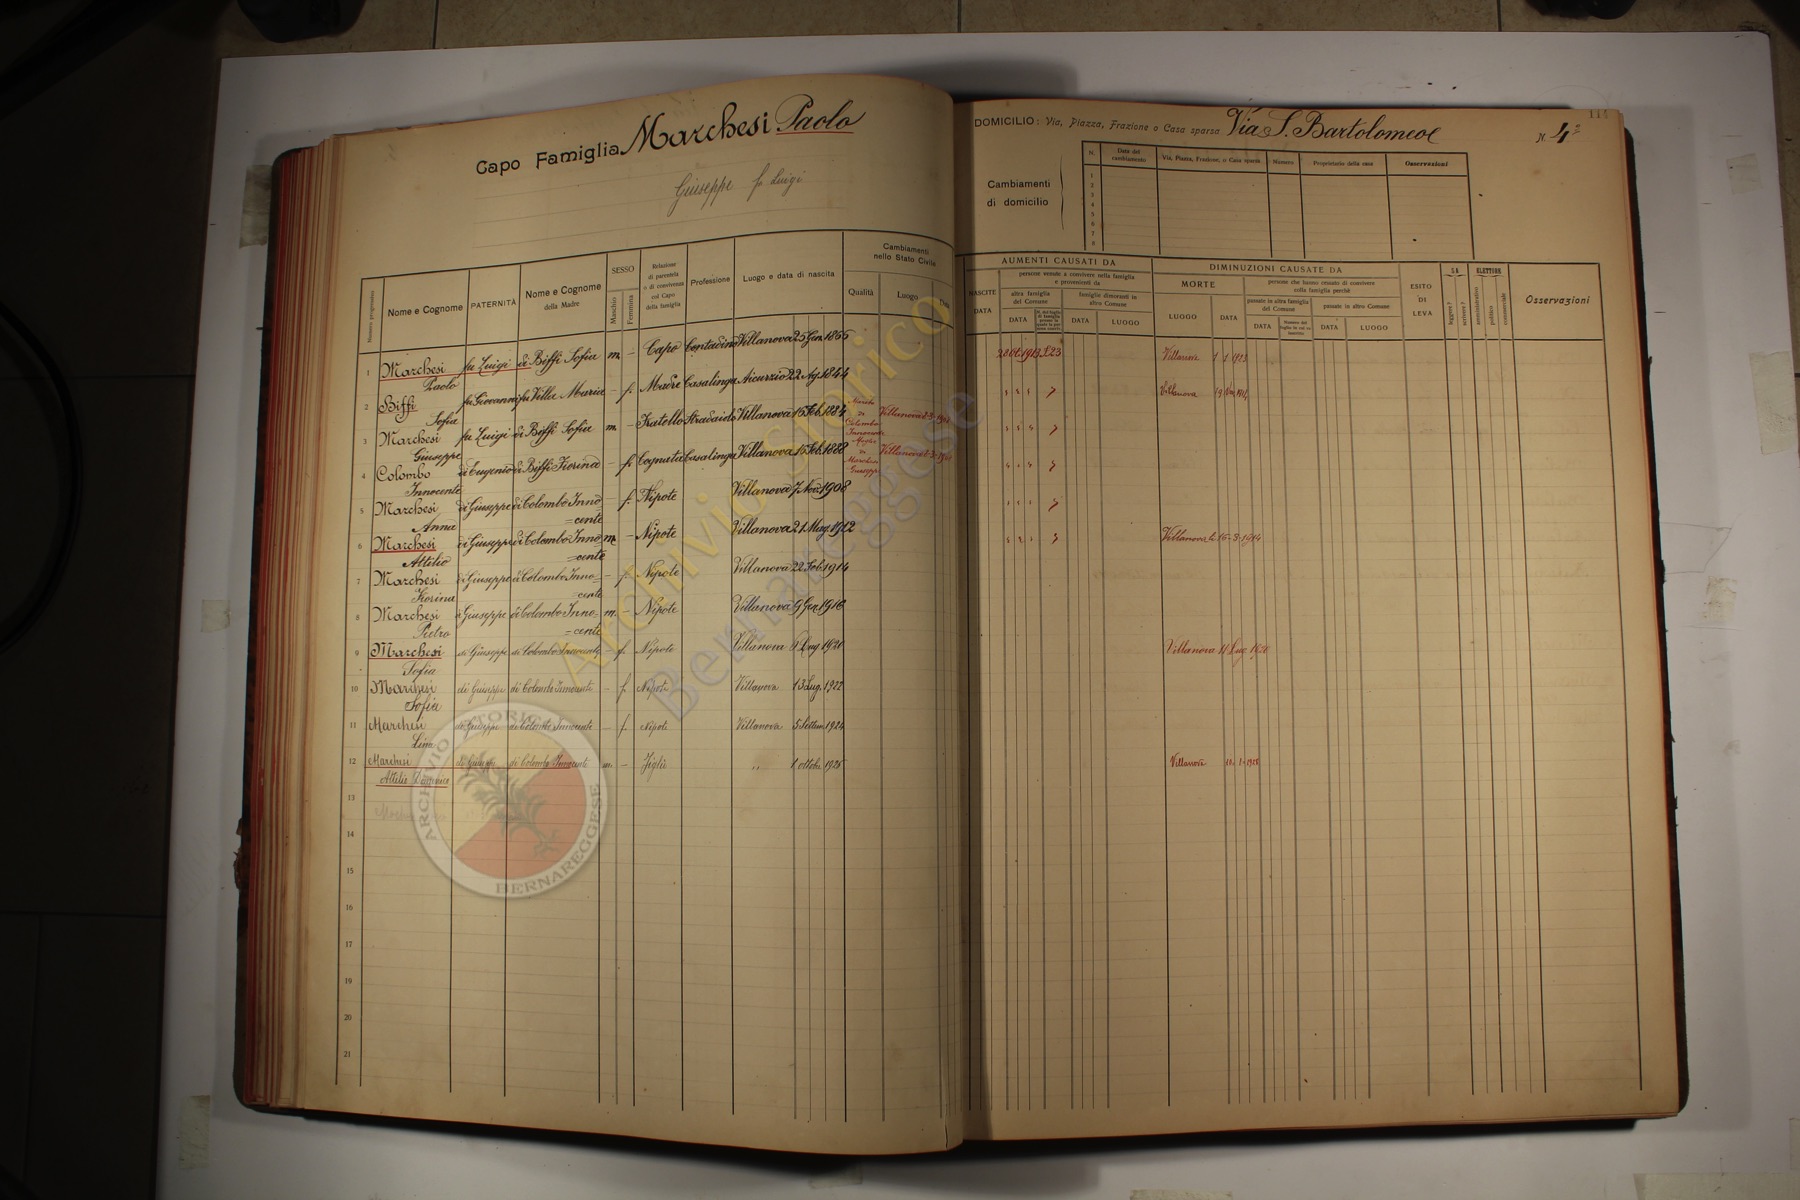 Capo Famiglia Marchesi Paolo
Giuseppe fu Luigi
Numero progressivo
Nome e Cognome
PATERNITÀ
Nome e Cognome
della Madre
SESSO
Maschio
Femmina
Relazione
di parentela
o di convivenza
col Capo
della famiglia
Professione
Luogo e data di nascita
Cambiamenti
nello Stato Civile
Qualità
Luogo
Data
1 Marchesi fu Luigi di Biffi Sofia m. - Capo Contadino Villanova 25 Gen. 1866
Paolo
2 Biffi fu Giovanni fu Villa Maria - f. Madre Casalinga Aicurzio 22 Ag. 1844
Sofia
3 Marchesi fu Luigi di Biffi Sofia m. - Fratello Stradaido Villanova 16 Feb. 1884
Giuseppe
4 Colombo di Eugenio di Biffi Fiorina - f. Cognata Casalinga Villanova 15 Feb. 1888
Innocente
5 Marchesi di Giuseppe di Colombo Inno - f. Nipote Villanova 7 Nov. 1908
Anna =cente
6 Marchesi di Giuseppe di Colombo Inno m. - Nipote Villanova 21 Mag. 1912
Attilio =cente
7 Marchesi di Giuseppe di Colombo Inno= - f. Nipote Villanova 22 Feb. 1914
Fiorina cente
8 Marchesi di Giuseppe di Colombo Inno- m. - Nipote Villanova 9 Gen. 1916
Pietro =cente
9 Marchesi di Giuseppe di Colombo Innocente - f. Nipote Villanova 9 Lug 1920
Sofia
10 Marchesi di Giuseppe di Colombo Innocente - f. Nipote Villanova 13 Lug. 1922
Sofia
11 Marchesi di Giuseppe di Colombo Innocente - f. Nipoti Villanova 5 Settem. 1924
Lina
12 Marchesi di Giuseppe di Colombo Innocente m. - Figlio ,, 1 ottobre 1925
Attilio Domenico
13
14
15
16
17
18
19
20
21
Colombo
Innocente
Moglie
di
Marchesi
Giuseppe
Villanova
Villanova
DOMICILIO: Via, Piazza, Frazione o Casa sparsa Via S. Bartolomeo
N. 4
Cambiamenti
di domicilio
N.
Data del
cambiamento
Via, Piazza, Frazione, o Casa sparsa
Numero
Proprietario della casa
Osservazioni
1
2
3
4
5
6
7
8
AUMENTI CAUSATI DA
NASCITE
DATA
persone venute a convivere nella famiglia
e provenienti da
altra famiglia
del Comune
DATA
famiglie dimoranti in
altro Comune
DATA
LUOGO
DIMINUZIONI CAUSATE DA
MORTE
LUOGO
DATA
persone che hanno cessato di convivere
colla famiglia perchè
passate in altra famiglia
del Comune
DATA
passate in altro Comune
DATA
LUOGO
ESITO
DI
LEVA
SA
leggere?
scrivere?
ELETTORE
amministrativo
politico
commerciale
Osservazioni
Villanova 1 1 1925
Villanova
Villanova li 15-3-1914
Villanova 11 Lug 1920
Villanova
Archivio Storico
Bernareggese
ARCHIVIO STORICO
BERNAREGGESE